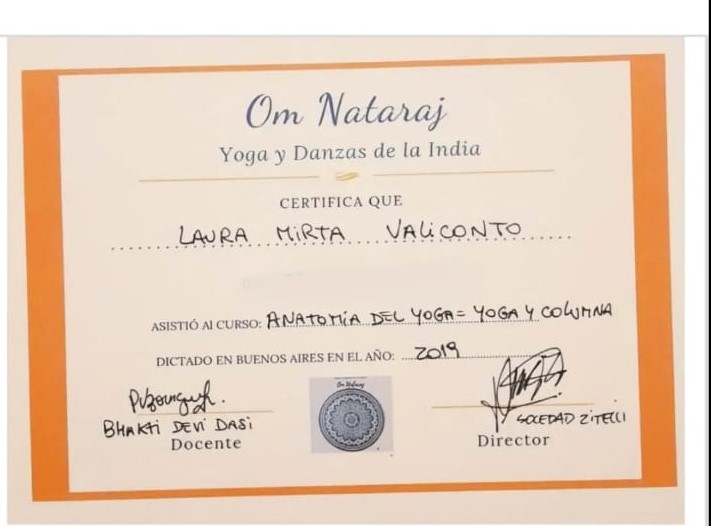 Om Nataraj
Yoga y Danzas de la India
CERTIFICA QUE
LAURA MiRTA VALiCONTO
ASISTIÓ Al CURSO: ANATOMÍA DEL YOGA= YOGA Y COLUMNA
DICTADO EN BUENOS AIRES EN EL AÑO: 2019
BHAKTi DEVi DASi
Docente
Om Nataraj
SOLEDAD ZiTELLi
Director